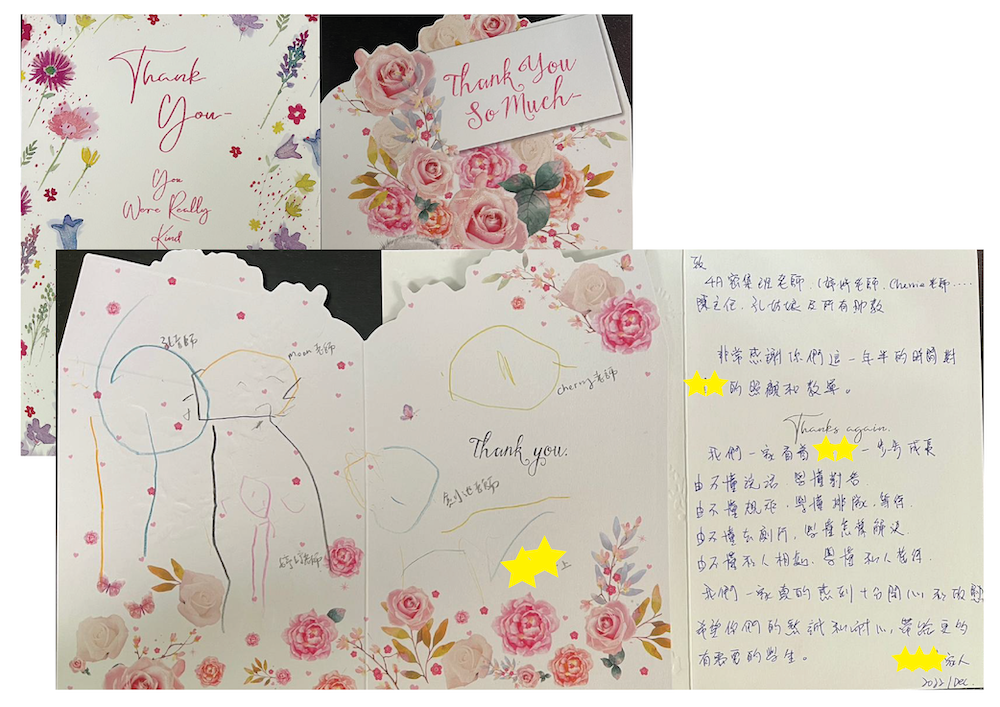 Thank
You
You
Were Really
Kind
Thank You
So Much
老師
moon老師
cherry老師
Thank you.
老師
老師
上
致
4A密集班老師、(婷婷老師、Cherrie老師....
陳主任、孔姑娘及所有師教
非常感謝你們這一年半的時間對
的照顧和教導。
Thanks again.
我們一家看着一步步成長
由不懂說話，學懂對答
由不懂規矩，學懂排隊、等待
由不懂去廁所，學懂怎樣解決
由不懂和人相處，學懂和人等待
我們一家真的感到十分開心和
希望你們的熱誠和耐心，帶給更多
有需要的學生。
家人
2022/Dec.